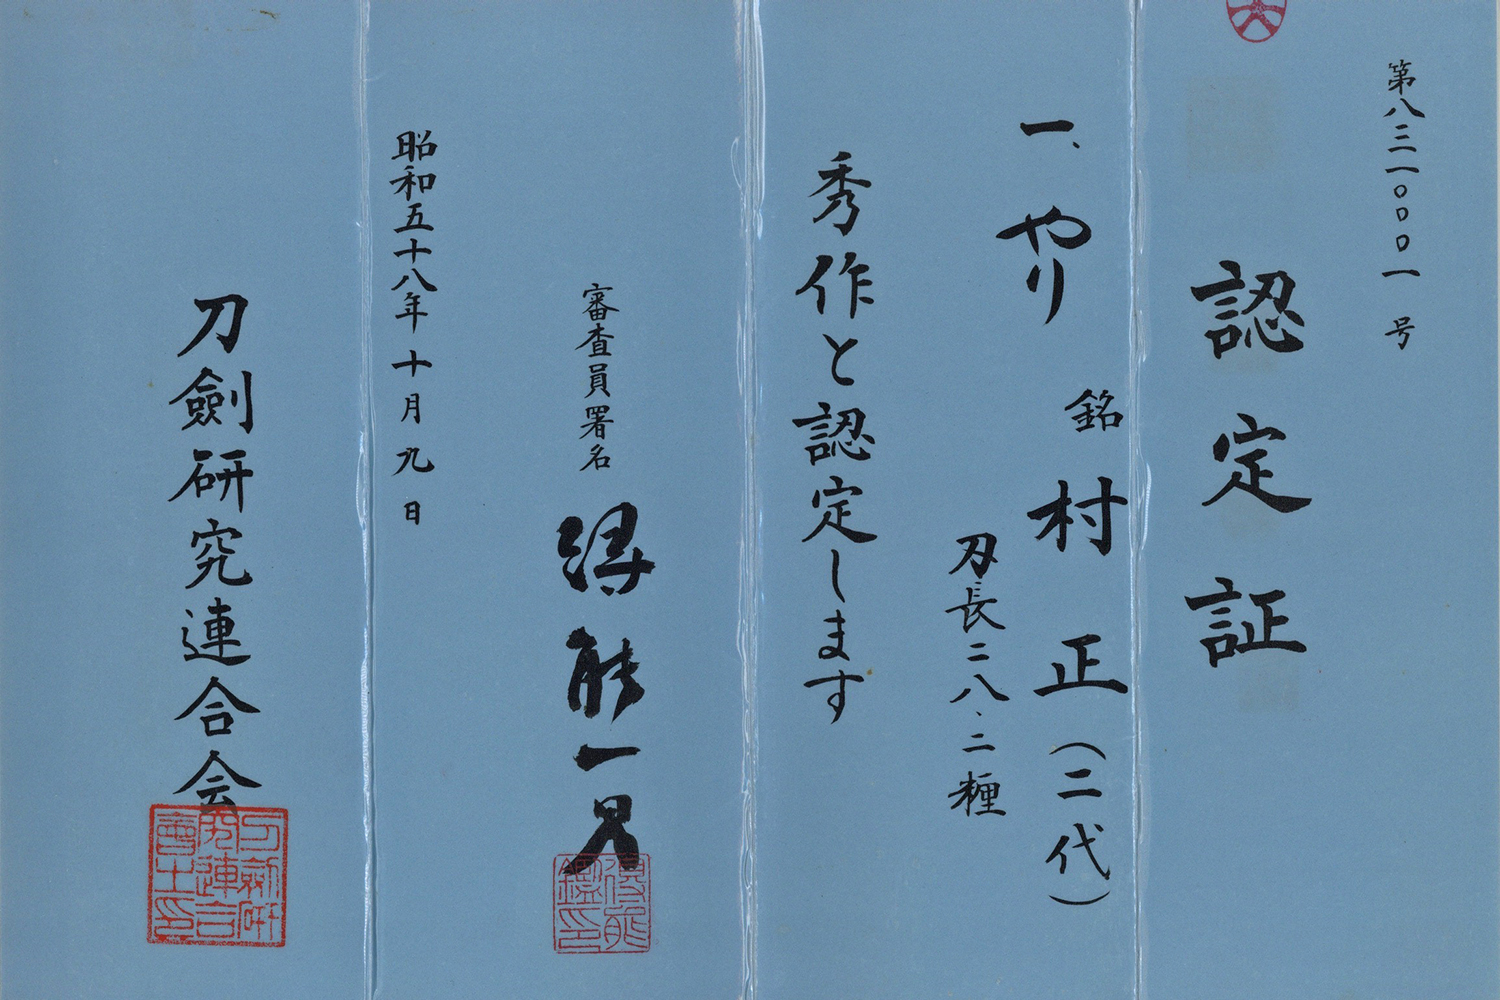 第八三一〇〇〇一号
認定証
一、やり 銘 村正(二代)
刃長二八、二糎
秀作と認定します
審査員署名 得能一男
得能鑑印
昭和五十八年十月九日
刀劍研究連合会
刀劍研究連合會之印